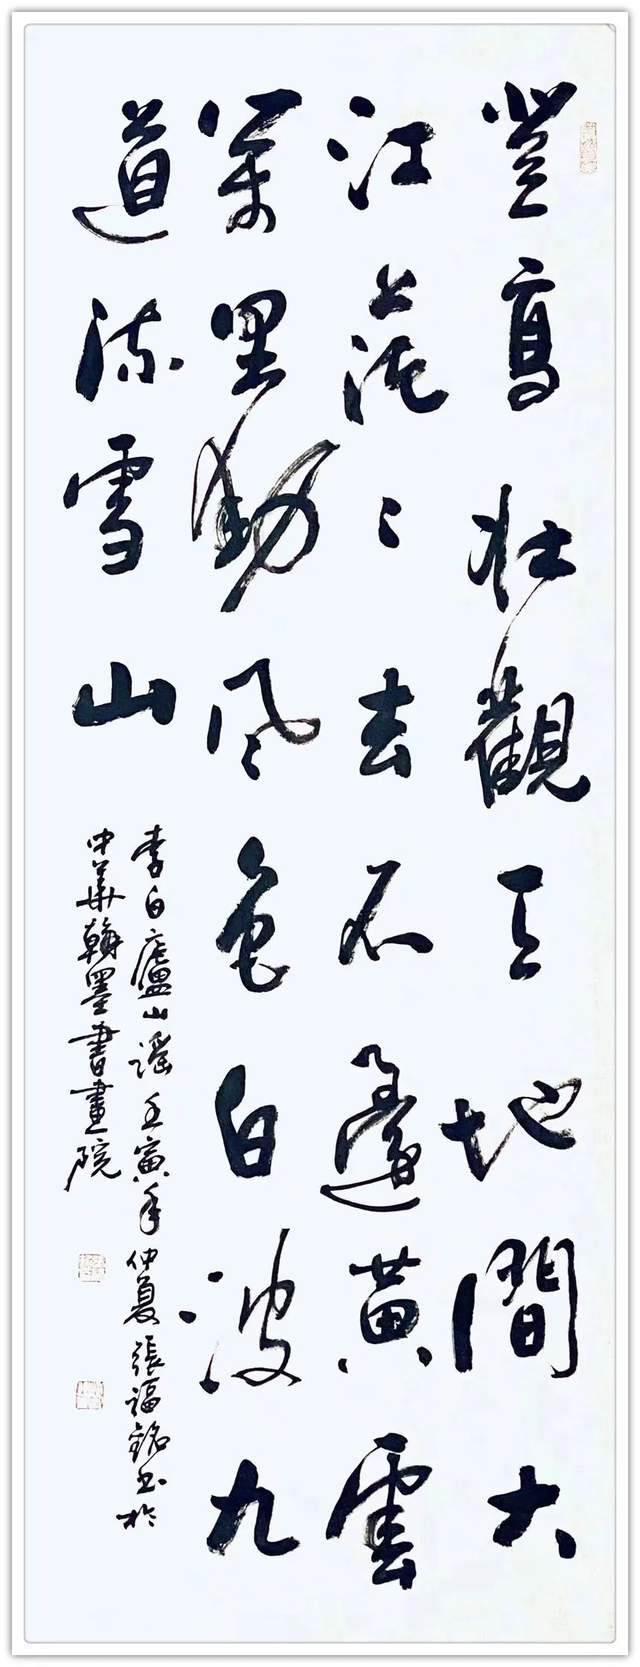 登高壯觀天地間大
江茫〻去不還黃雲
萬里動風色白波九
道流雪山
李白廬山謠壬寅年仲夏張福銘书於
中華翰墨書畫院